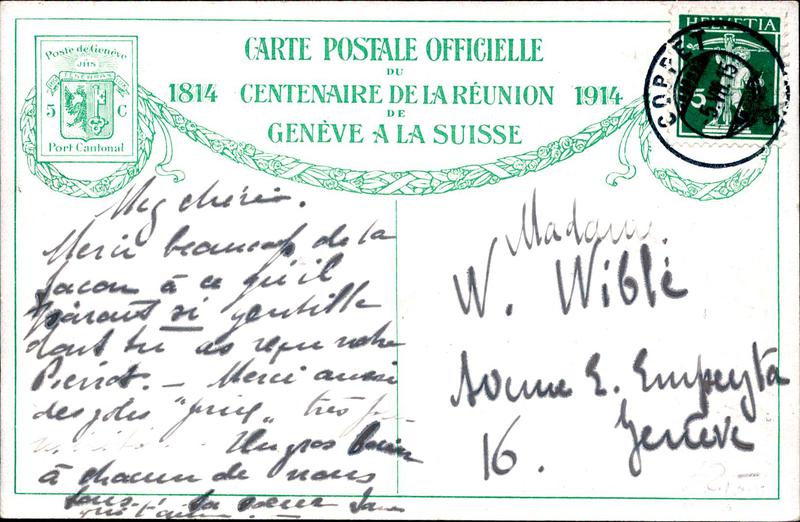 Poste de Genève
JHS
5 C
Port Cantonal
CARTE POSTALE OFFICIELLE
DU
1814 CENTENAIRE DE LA RÉUNION 1914
DE
GENÈVE A LA SUISSE
HELVETIA
5
COPPET
Meg chérie.
Merci beaucoup de la
façon à ce qu'il
parait si gentille
dont tu as reçu notre
Pierrot. — Merci aussi
des jolis très
Un gros baiser
à chacun de nous
tous. Ta soeur
Madame
W. Wiblé
Avenue E. Empeyta
16. Genève